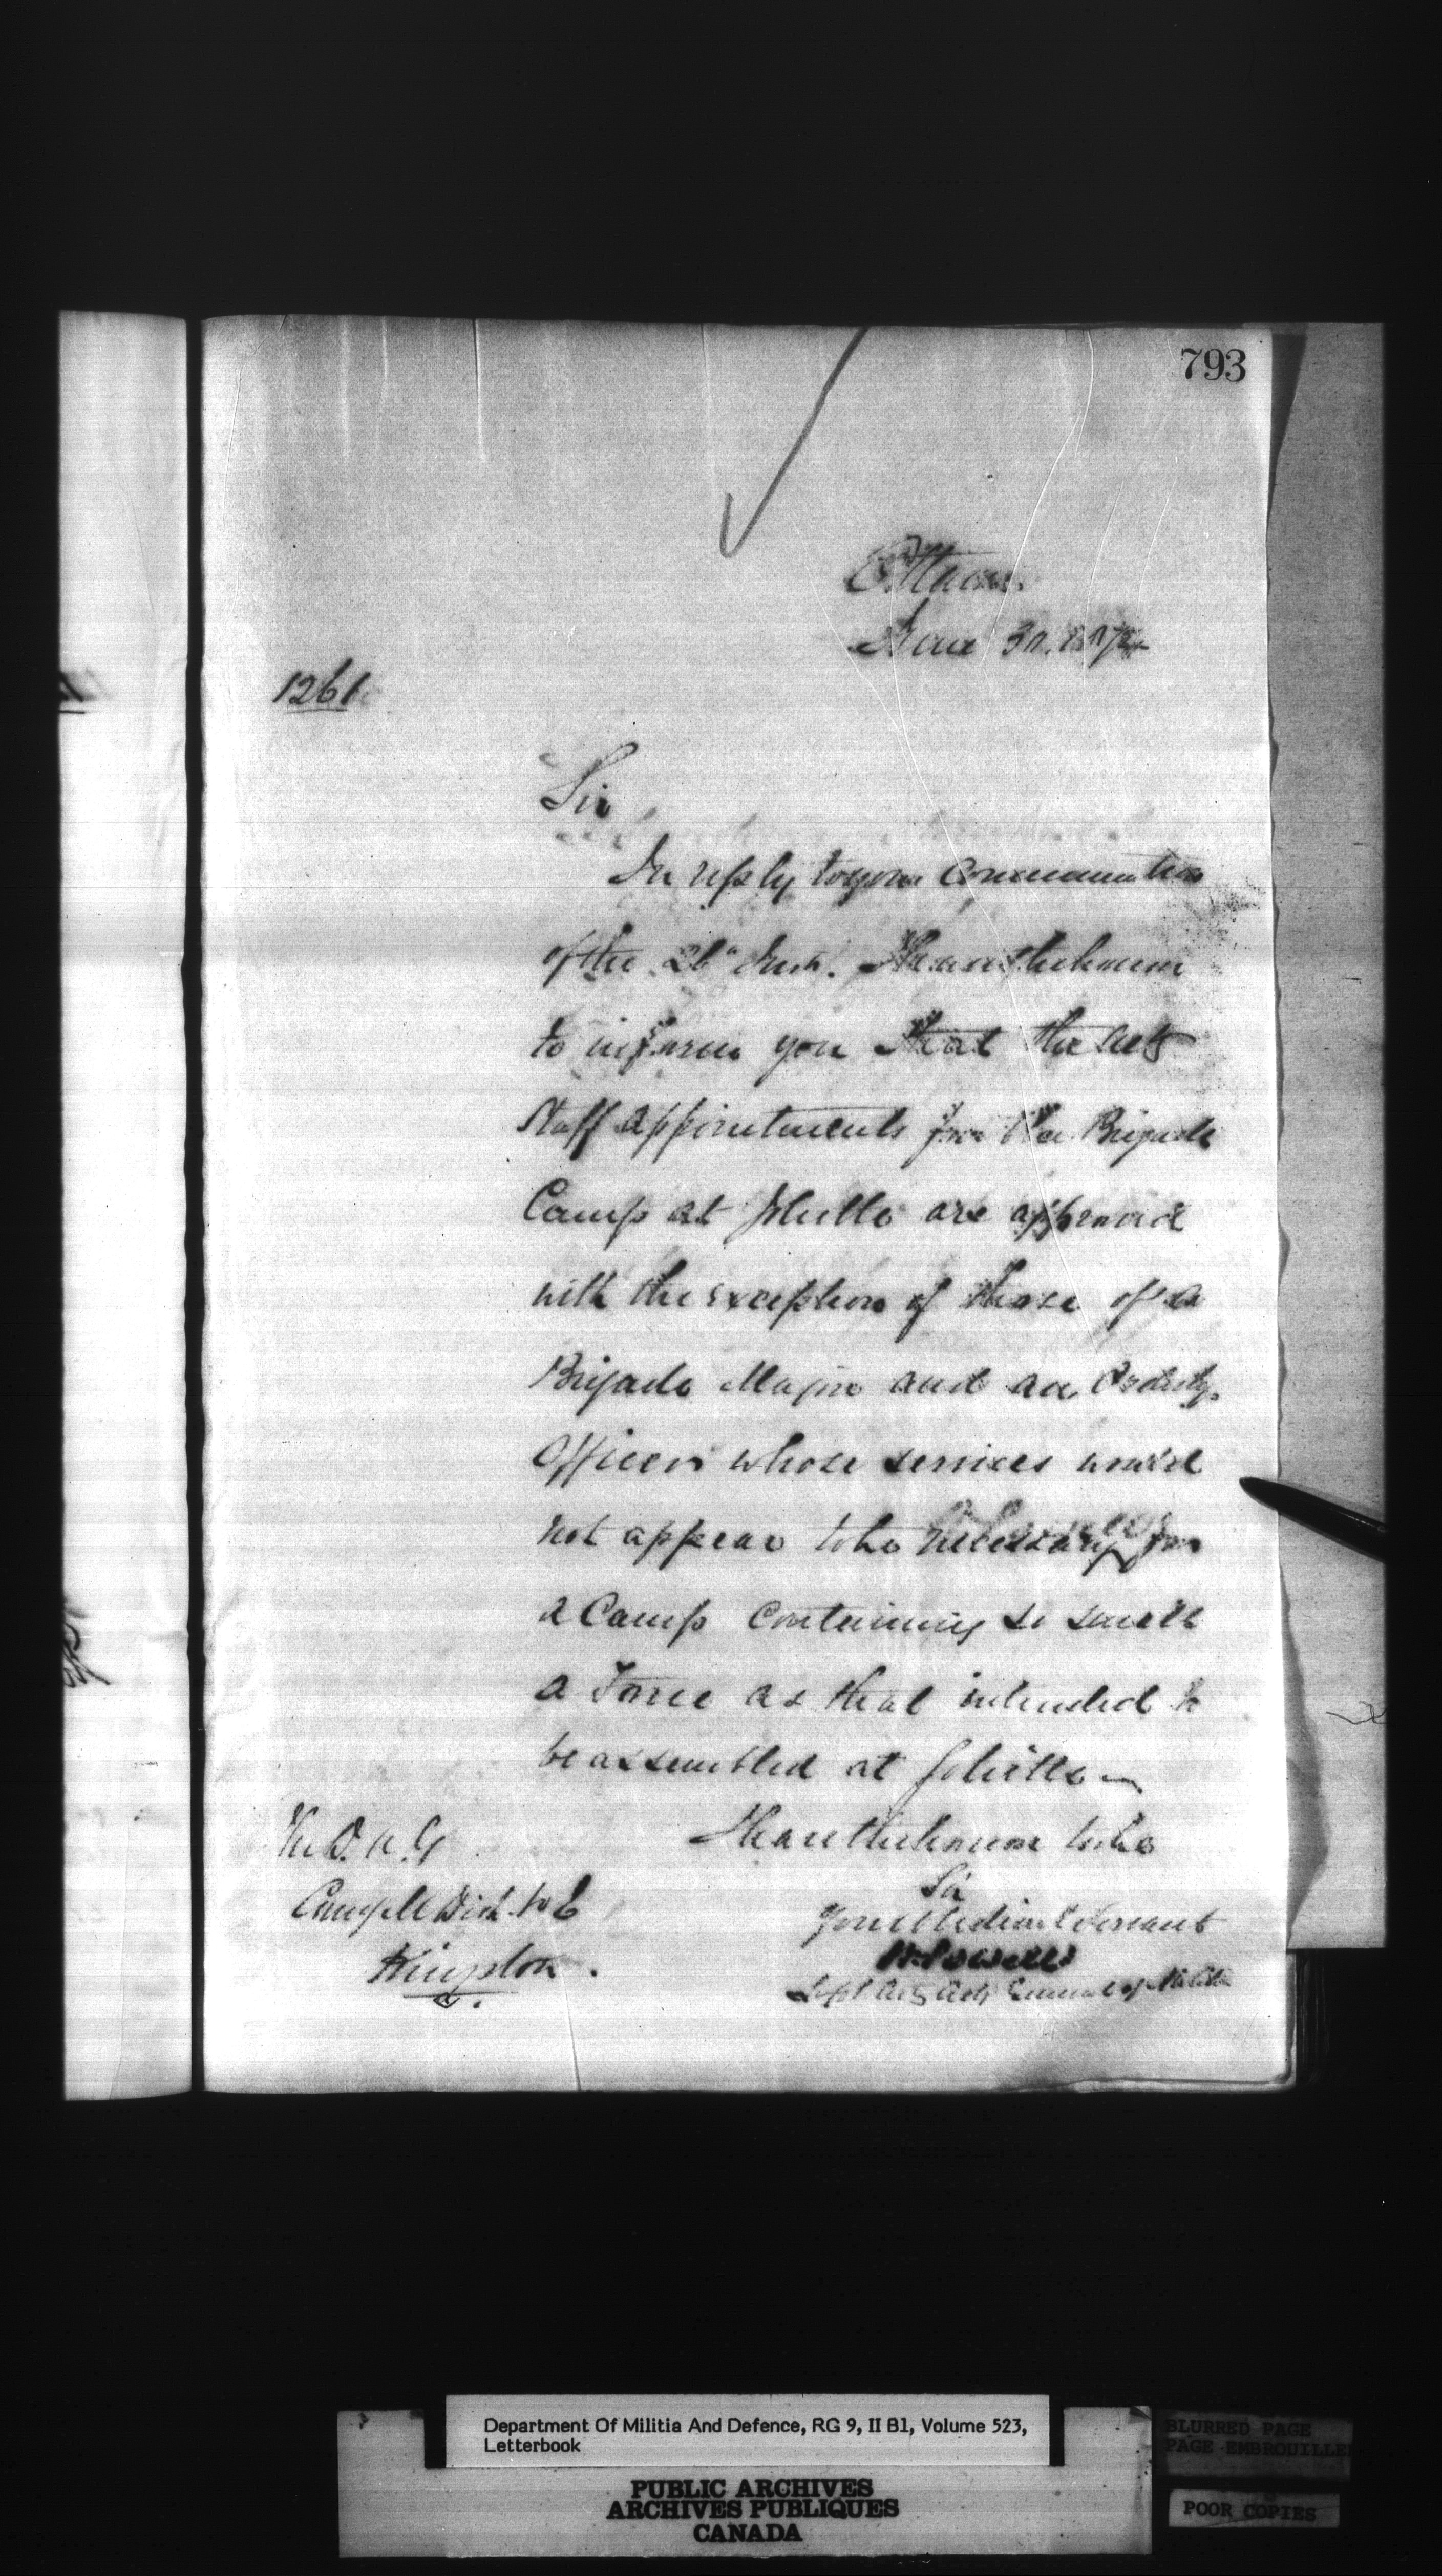 793
Ottawa.
June 30. 1874
1261
Sir
In reply to your Communication
of the 26" Inst. I have the honour
to inform you that the
Staff appointments for the Brigade
Camp at are approved
with the exception of those of a
Brigade Major and an Orderly
Officer whose services would
not appear to be necessary for
a Camp containing so small
a Force as that intended to
be assembled at
I have the honour to be
Sir
Your Obedient Servant
W. Powell
Actg Adjt General of Militia
The D. A. G
Comg
Kingston.
Department Of Militia And Defence, RG 9, II B1, Volume 523,
Letterbook
PUBLIC ARCHIVES
ARCHIVES PUBLIQUES
CANADA
BLURRED PAGE
PAGE EMBROUILLEE
POOR COPIES